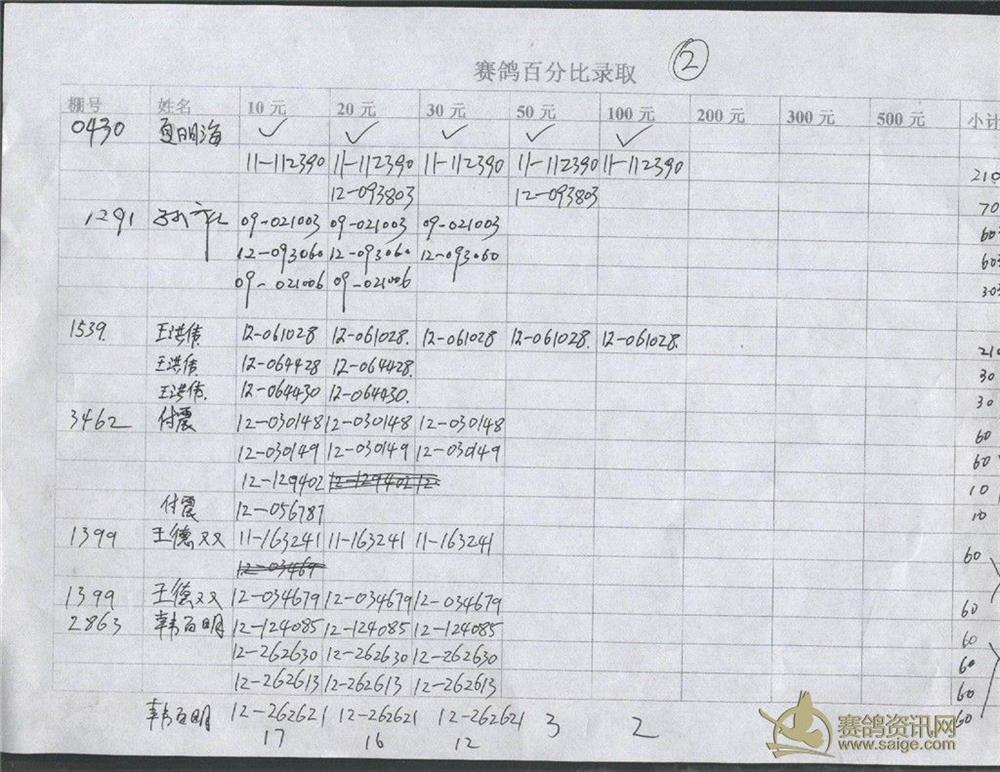 赛鸽百分比录取 ②
棚号 姓名 10元 20元 30元 50元 100元 200元 300元 500元 小计
0430 夏明海 ✓ ✓ ✓ ✓ ✓
11-112390 11-112390 11-112390 11-112390 11-112390 210
12-093803 12-093803 70
1291 09-021003 09-021003 09-021003 60
12-093060 12-093060 12-093060 60
09-021006 09-021006 30
1539. 王洪伟 12-061028 12-061028. 12-061028 12-061028. 12-061028. 210
王洪伟 12-064428 12-064428. 30
王洪伟. 12-064430 12-064430. 30
3462 付震 12-030148 12-030148 12-030148 60
12-030149 12-030149 12-030149 60
12-129402 12-129402 12- 10
付震 12-056787 10
1399 王德双 11-163241 11-163241 11-163241 60
12-03469
1399 王德双 12-034679 12-034679 12-034679 60
2863 韩百明 12-124085 12-124085 12-124085 60
12-262630 12-262630 12-262630 60
12-262613 12-262613 12-262613 60
韩百明 12-262621 12-262621 12-262621 3 2 60
17 16 12
赛鸽资讯网
www.saige.com